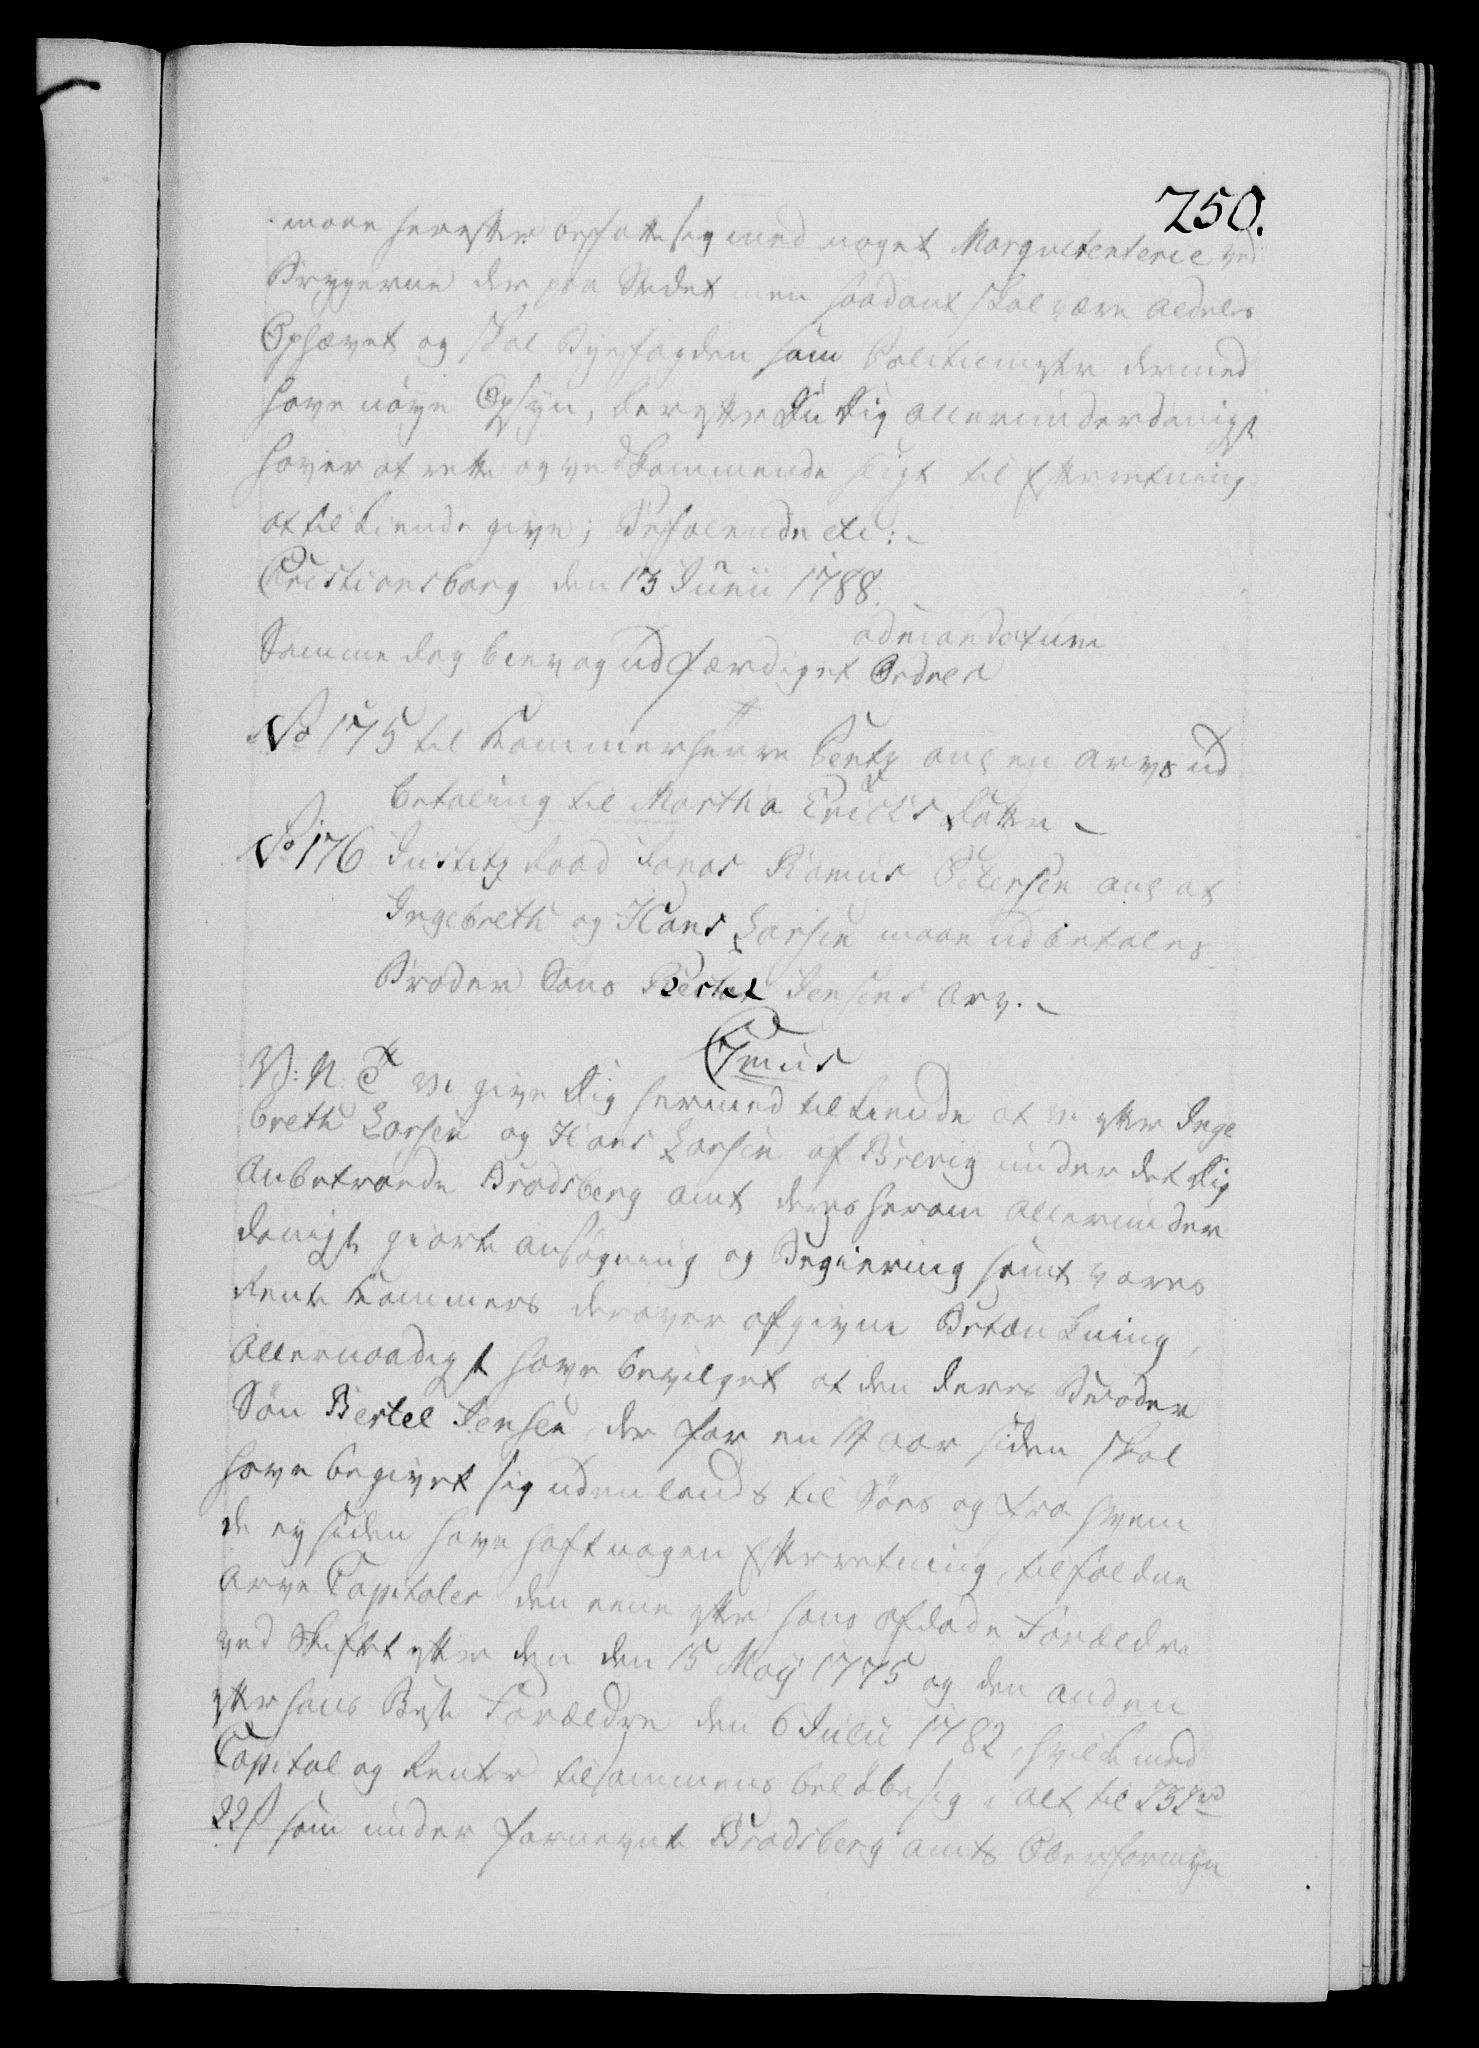 250.
maae herefter befatte sig med noget Marquetenterie ved
Brygerne der paa Stedet men saadant skal være aldeles
Ophævet og skal Byefogden som Politiemester dermed
have nöye Opsyn, derefter Du Dig allerunderdanigst
haver at rette og vedkommende sligt til Efterretning
at tilkiende give; Befalende etc:
Cristiansborg den 13 Junii 1788.
ad mandatum
Samme dag blev og udfærdiget Ordres
No 175 til Kammerherre Pentz ang en Arvs ud
betaling til Martha Erichs Datter
No 176 Justitz Raad Fanas Ramus Petersen ang at
Ingebreth og Hans Larsen maae udbetales
Broder Söns Bertel Jensens Arv.
V: N. T vi give Dig hermed tilkiende at vi efter Inge
breth Larsen og Hans Larsen af Brevig under det Dig
Anbetroede Bradsberg amt deres herom allerunder
danigst giorte ansögning og Begiering samt vores
Rente Kammers derover afgivne Betænkning,
Allernaadigst have bevilget at den deres Broder
Sön Bertel Jensen, der for en 14 aar siden skal
have begivet sig udenlands til Söes og fra hvem
de ey siden have haft nogen Efterretning, tilfaldne
Arve Capitaler den eene efter hans afdöde Forældre
ved Skiftet efter dem den 15 Maij 1775 og den anden
efter hans Beste Forældre den 6 Julii 1782, hvilke med
Capital og Renter tilsammens belöbe sig i alt til 232 rd
22 ß som under fornevnte Bradsberg amts Overformyn